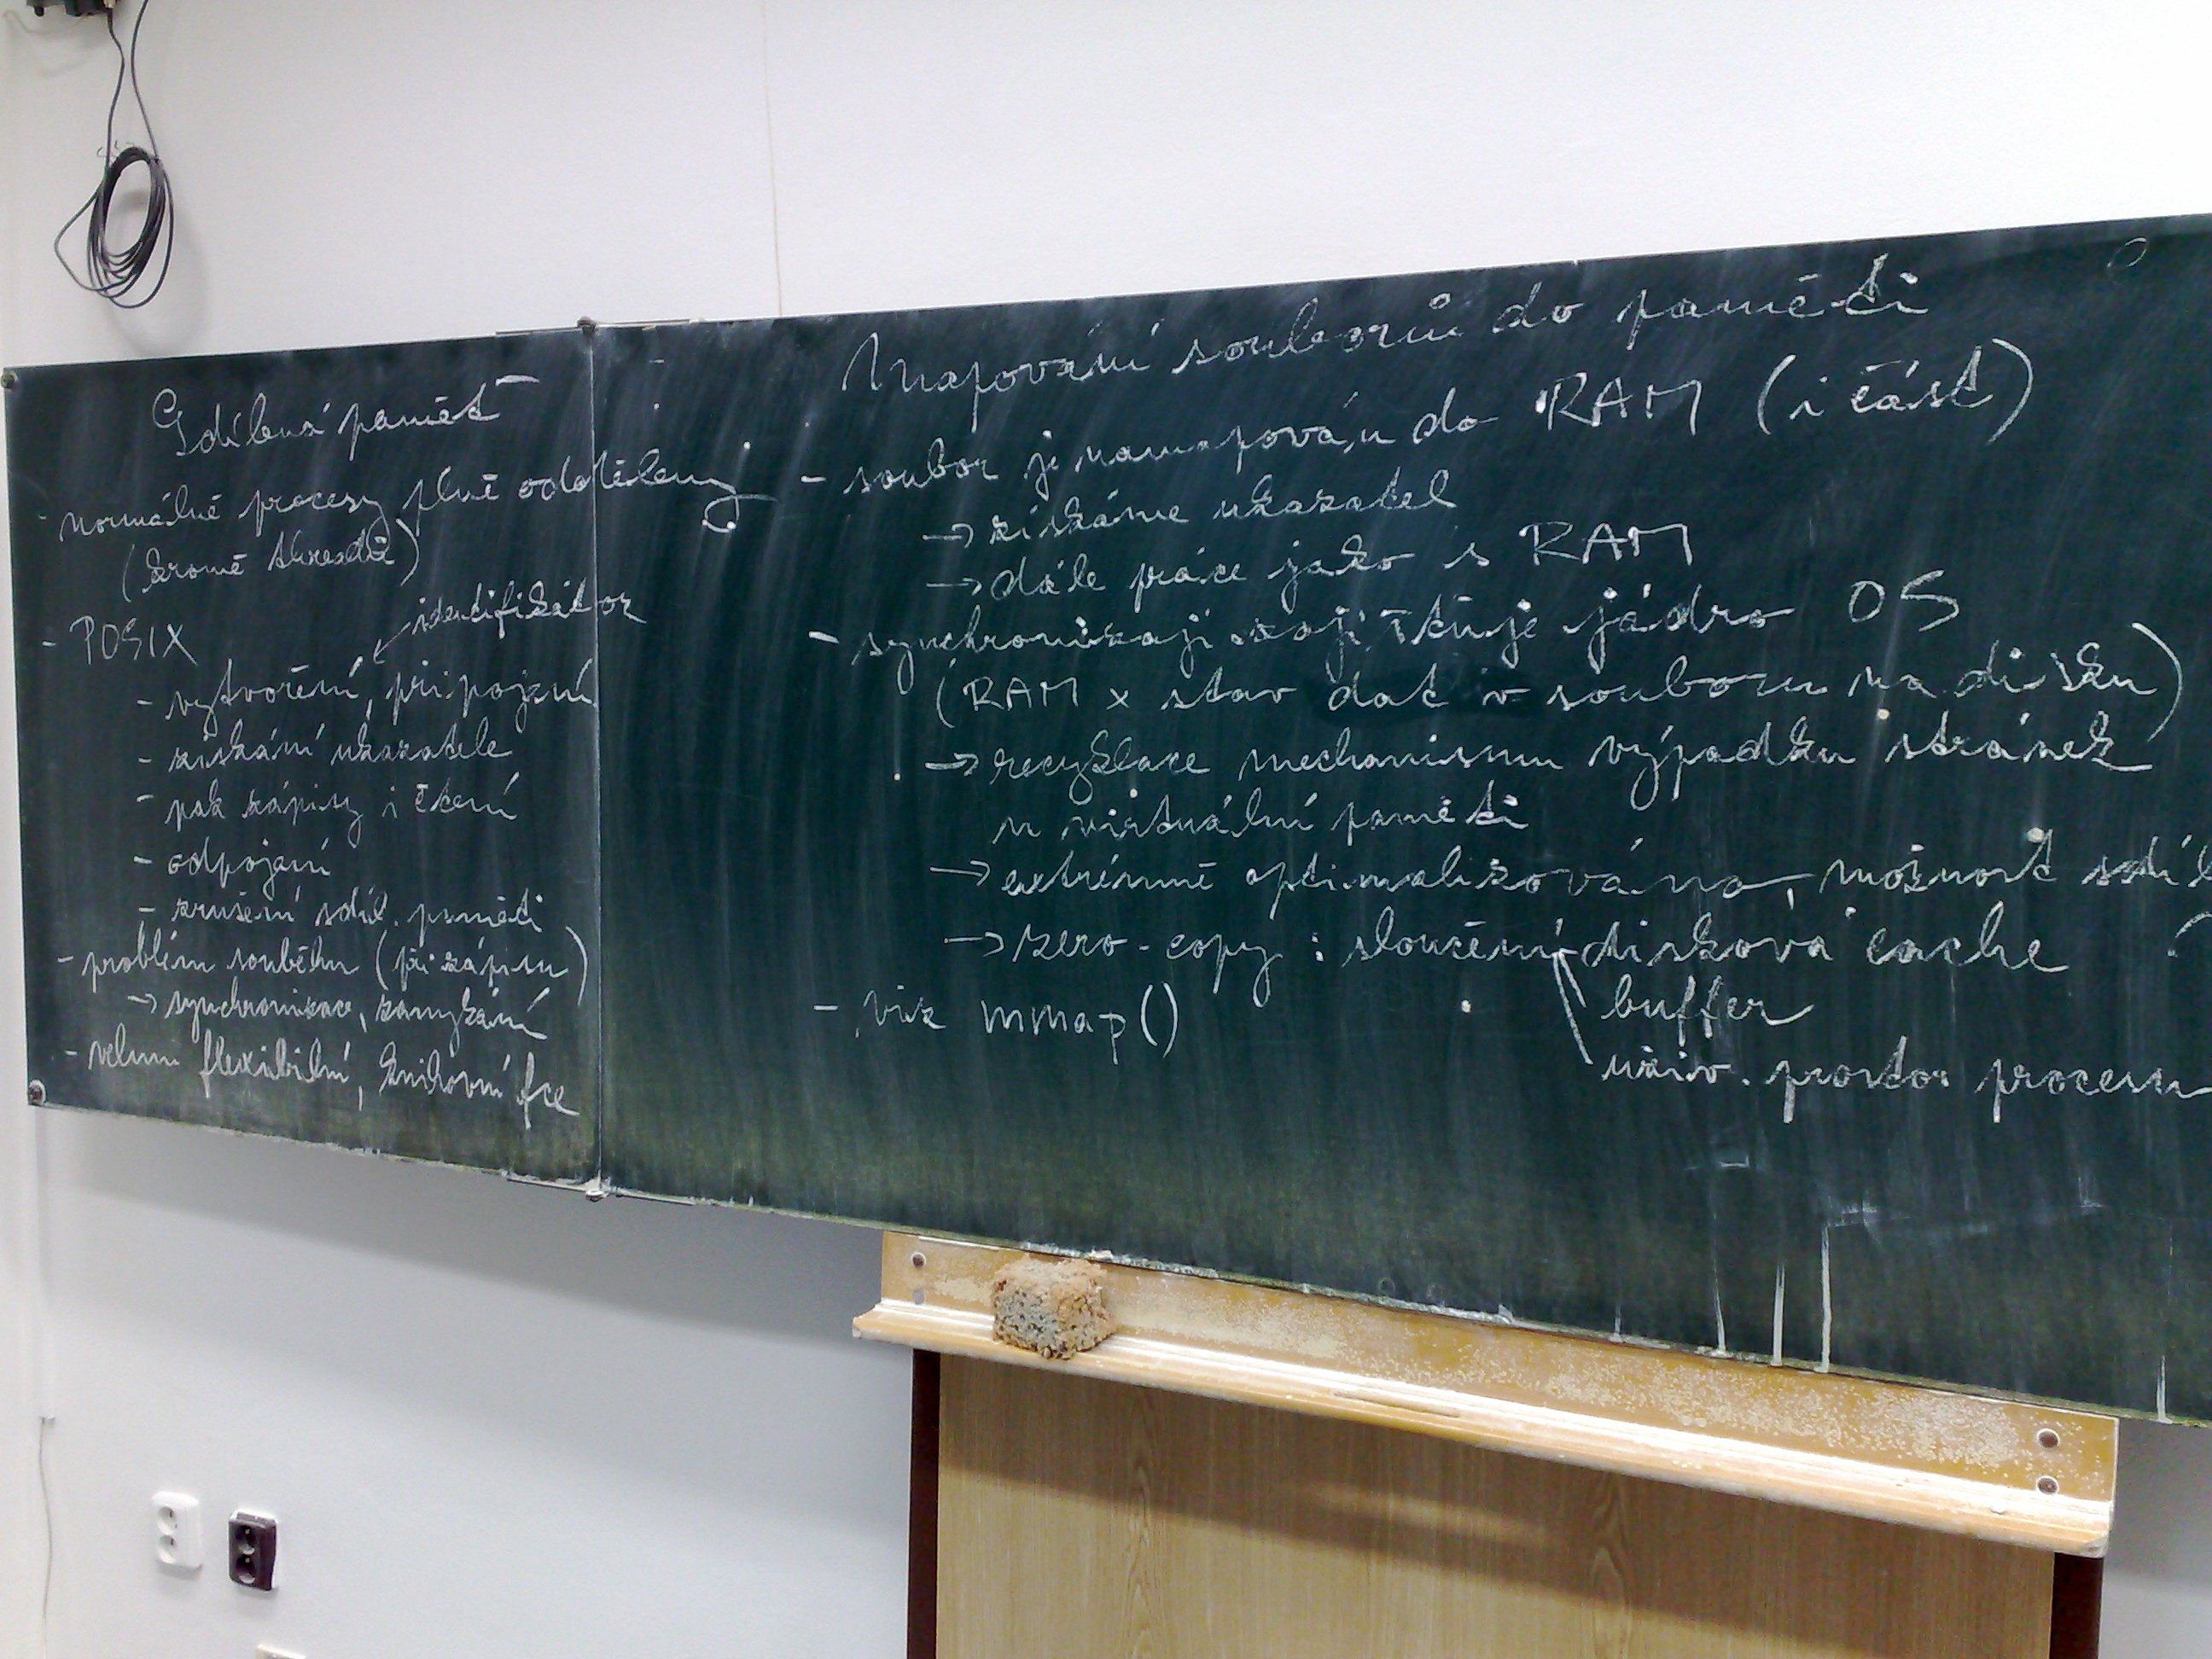 Sdílená paměť
- normálně procesy plně odděleny
(kromě threadů)
- POSIX
identifikátor
- vytvoření, připojení
- získání ukazatele
- pak zápisy i čtení
- odpojení
- zrušení sdíl. paměti
- problém souběhu (při zápisu)
→ synchronizace, zamykání
- velmi flexibilní, knihovní fce
Mapování souborů do paměti
- soubor je namapován do RAM (i část)
→ získáme ukazatel
→ dále práce jako s RAM
- synchronizaci zajišťuje jádro OS
(RAM x stav dat v souboru na disku)
→ recyklace mechanismu výpadku stránek
u virtuální paměti
→ extrémně optimalizováno, možnost sdíl
→ zero-copy : sloučení disková cache
buffer
uživ. prostor procesu
- viz mmap()